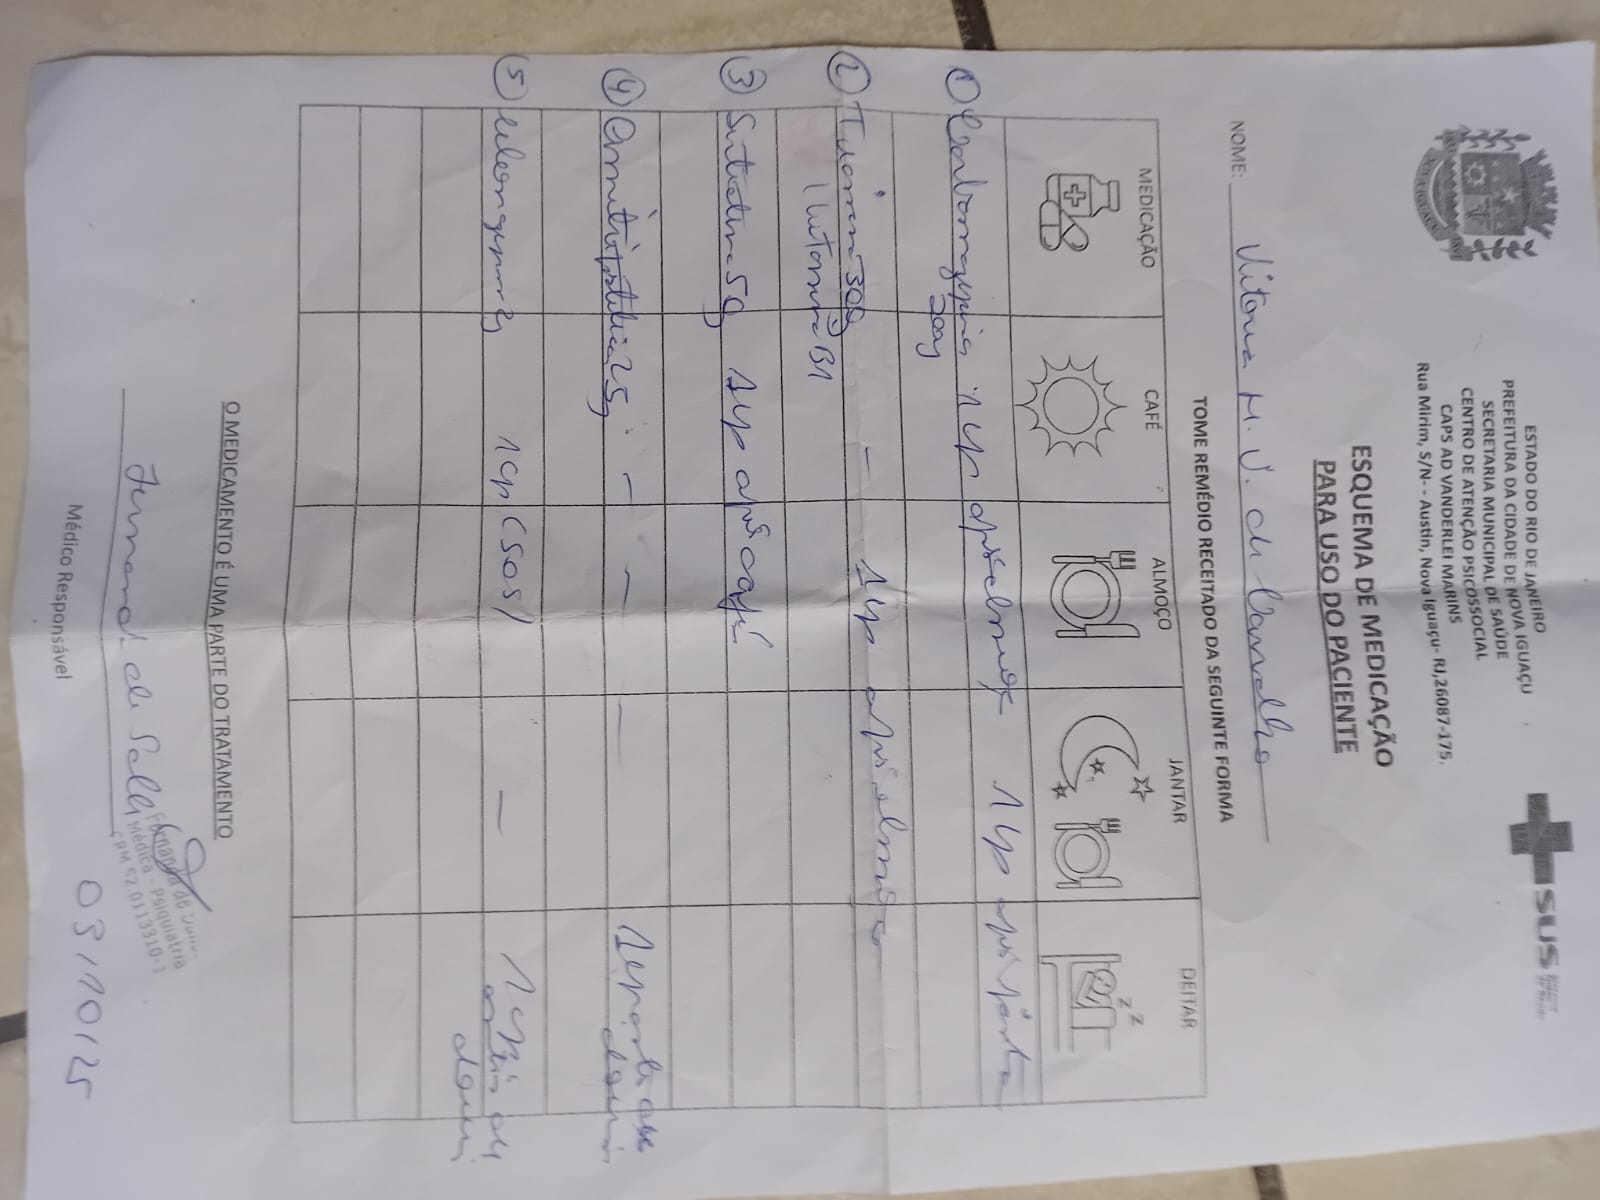 ESTADO DO RIO DE JANEIRO
PREFEITURA DA CIDADE DE NOVA IGUAÇU
SECRETARIA MUNICIPAL DE SAÚDE
CENTRO DE ATENÇÃO PSICOSSOCIAL
CAPS AD VANDERLEI MARINS
Rua Mirim, S/N- - Austin, Nova Iguaçu- RJ,26087-175.
SUS
ESQUEMA DE MEDICAÇÃO
PARA USO DO PACIENTE
NOME: Vitoria M. V. de Carvalho
TOME REMÉDIO RECEITADO DA SEGUINTE FORMA
MEDICAÇÃO CAFÉ ALMOÇO JANTAR DEITAR
z z
① Carbamazepina 1 cp após almoço 1 cp após janta
200g
② Tiamina 300g - 1 cp após almoço
(Vitamina B1
③ Sertralina 50g 1 cp após café
④ Amitriptilina 25g - - - 1 cp antes de
dormir
⑤ 1 cp (SOS) - 1 cp antes de
dormir
O MEDICAMENTO É UMA PARTE DO TRATAMENTO
Fernanda de
Fernanda de
Médica - Psiquiatria
CRM 52.0113310-1
Médico Responsável
03/10/25